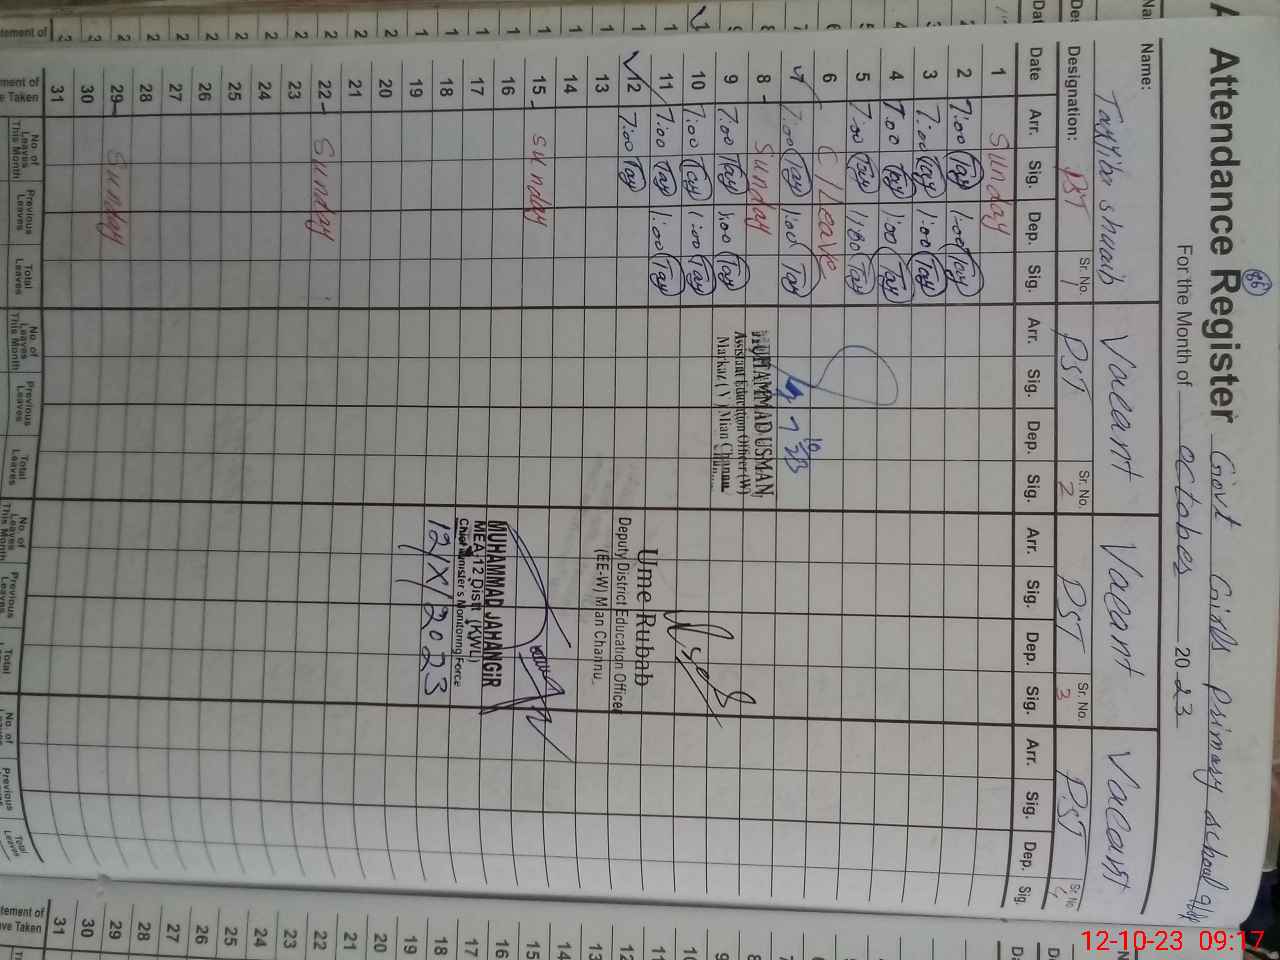 86
Attendance Register Govt Girls Primary school
For the Month of October 2023
Name: Tayyiba shuaib Vacant Vacant Vacant
Designation: PST Sr. No. 1 PST Sr. No. 2 PST Sr. No. 3 PST Sr. No. 4
Date Arr. Sig. Dep. Sig. Arr. Sig. Dep. Sig. Arr. Sig. Dep. Sig. Arr. Sig. Dep. Sig.
1 Sunday
2 7:00 Tay 1:00 Tay
3 7:00 Tay 1:00 Tay
4 7:00 Tay 1:00 Tay
5 7:00 Tay 1:00 Tay
6 C/Leave
7 7:00 Tay 1:00 Tay
8 Sunday
9 7:00 Tay 1:00 Tay
10 7:00 Tay 1:00 Tay
11 7:00 Tay 1:00 Tay
12 7:00 Tay
13
14
15 Sunday
16
17
18
19
20
21
22 Sunday
23
24
25
26
27
28
29 Sunday
30
31
MUHAMMAD USMAN
Assistant Education Officer (W)
Markaz ( V ) Mian Channu
Ume Rubab
Deputy District Education Officer
(EE-W) Mian Channu
MUHAMMAD JAHANGIR
MEA-12 Distt (KWL)
Chief Minister's Monitoring Force
12/X/2023
No. of Leaves This Month Previous Leaves Total Leaves No. of Leaves This Month Previous Leaves Total Leaves No. of Leaves This Month Previous Leaves Total No. of Previous Total Leaves
12-10-23 09:17